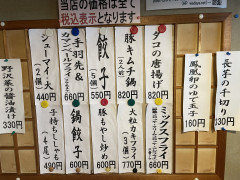 当店の価格は全て
税込表示となります。
長芋の千切り
330円
鳳凰卵のゆで玉子
160円
タコの唐揚げ
820円
豚キムチ鍋
(2人前)
820円
餃子
(5個)
550円
手羽先&
カマンベールフライ
660円
シューマイ大
(2個)
440円
野沢菜の醤油漬け
330円
ミックスフライ
660円
大粒カキフライ
(3個)
770円
豚もやし炒め
600円
鍋餃子
660円
子持ちししゃも
(4尾)
490円